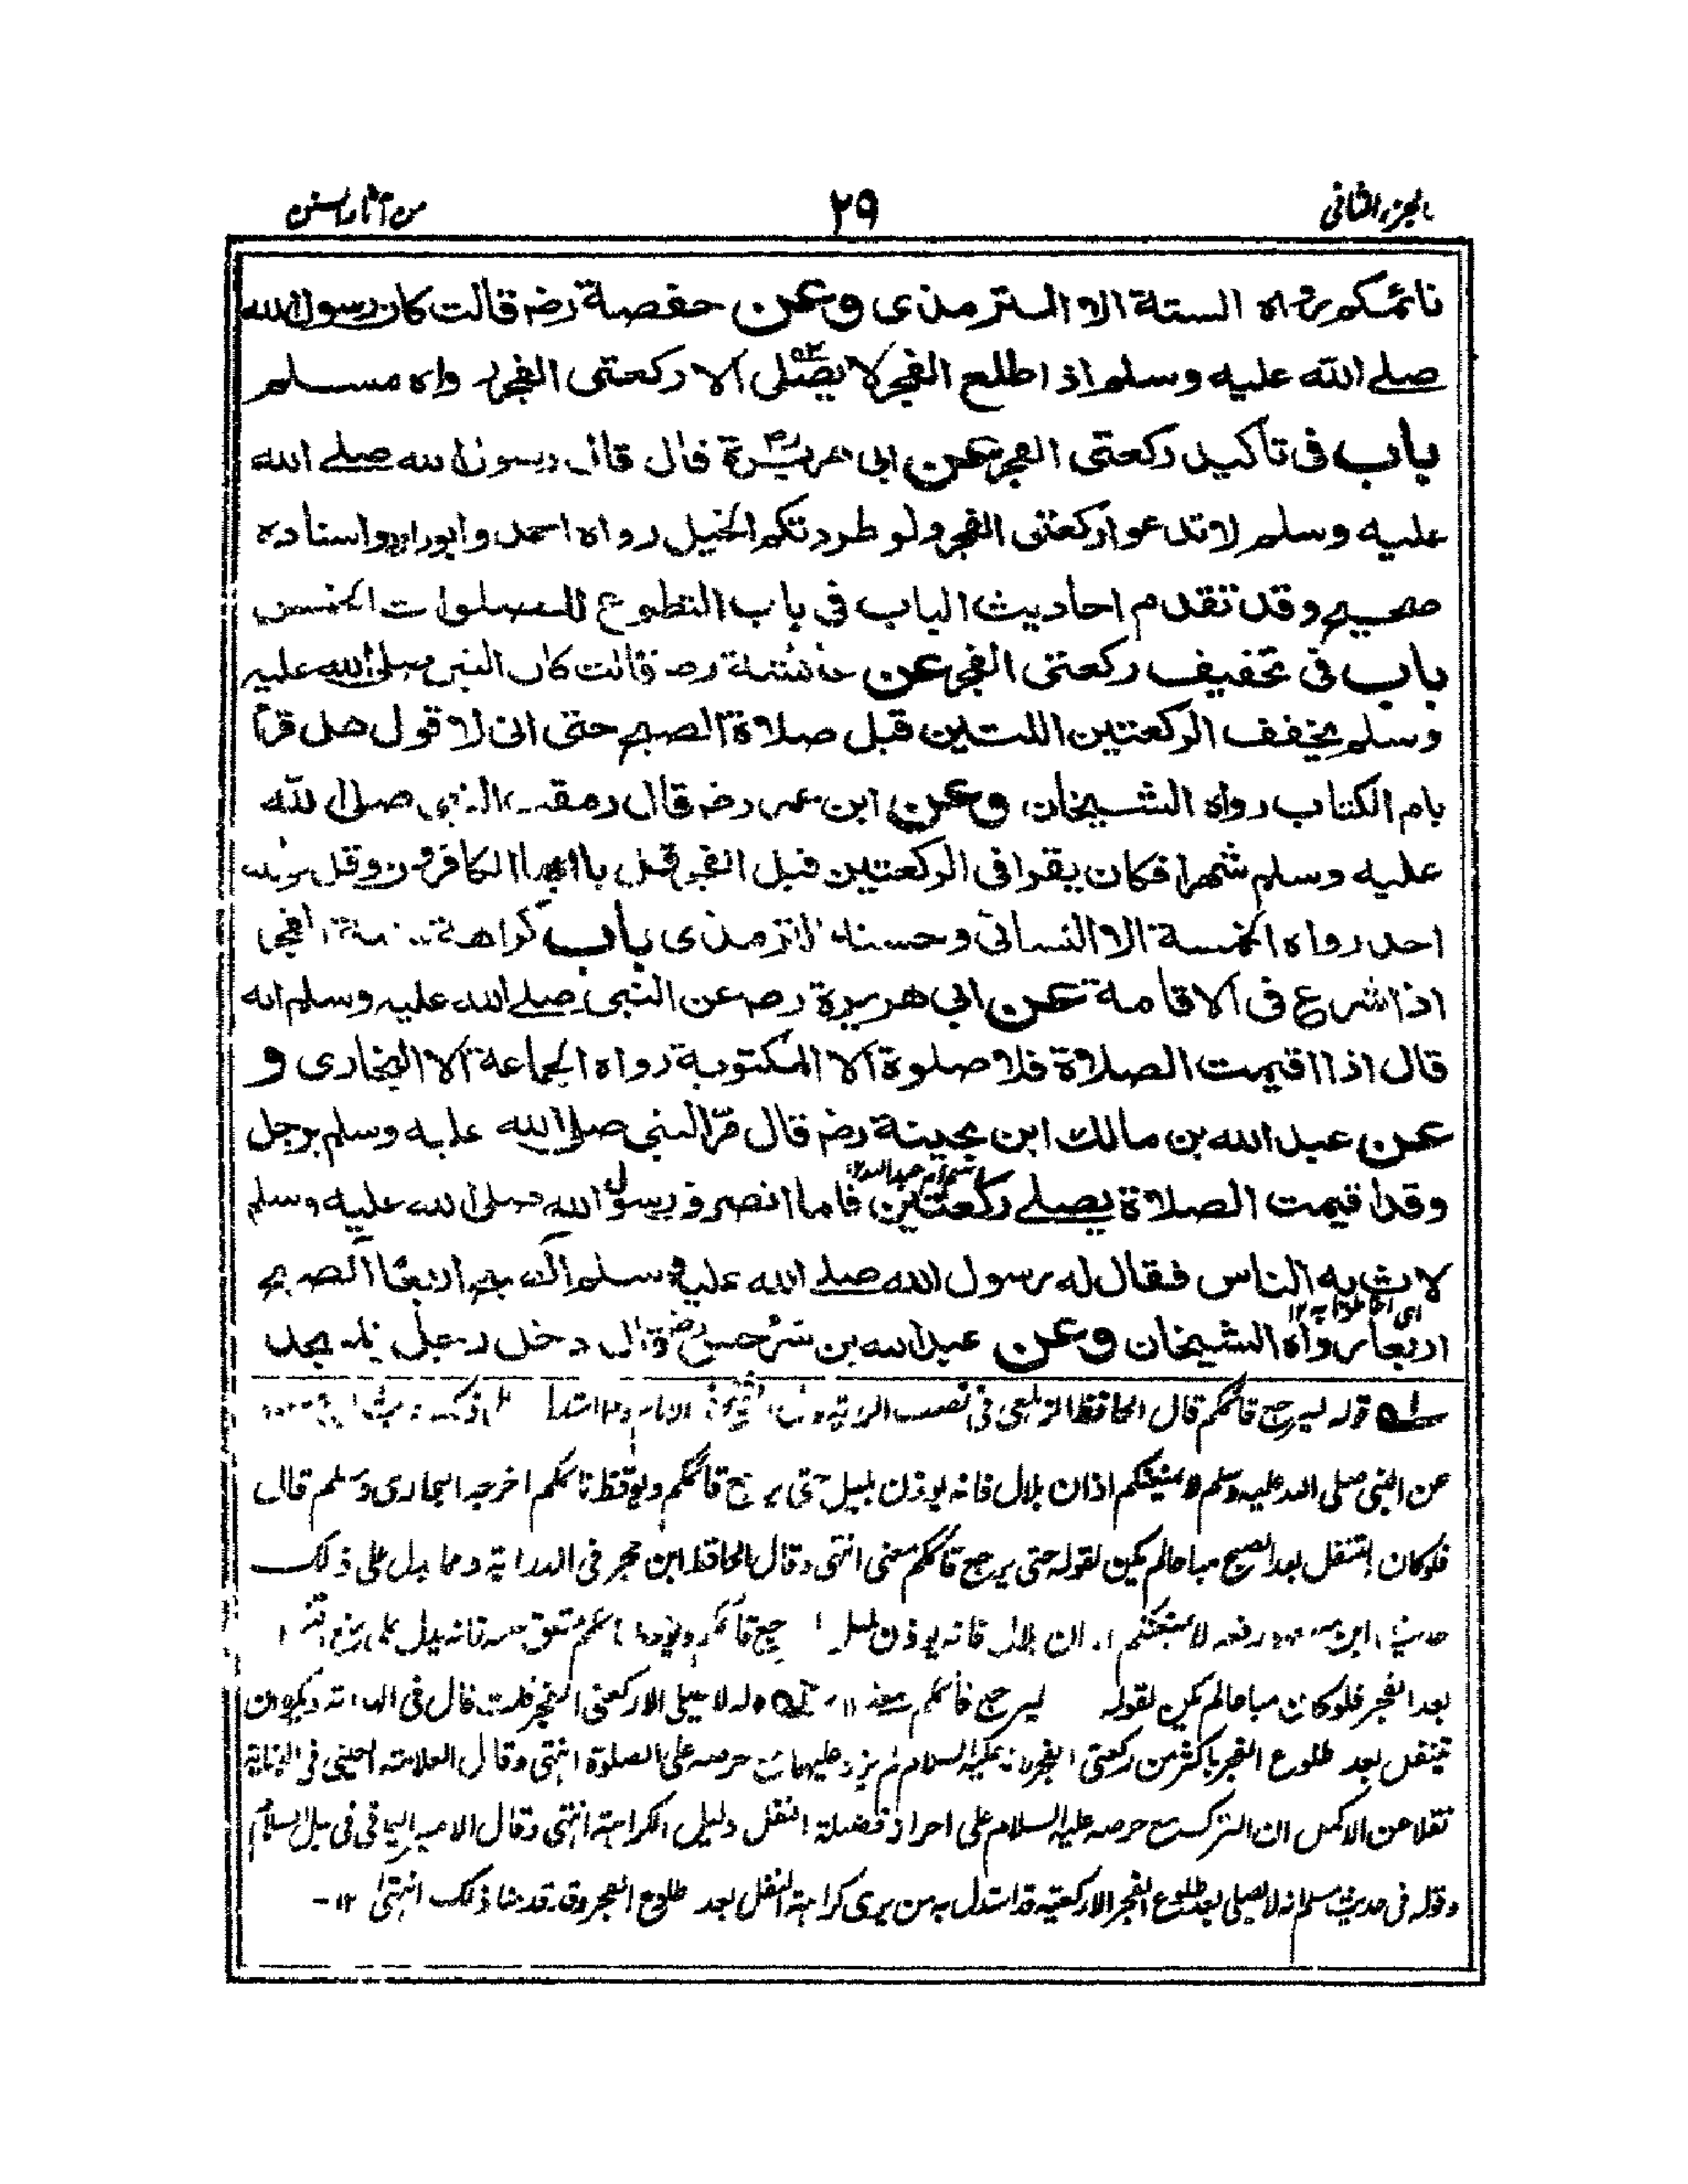 الجزء الثاني ٢٩ من آثار السنن
نائمكم رواه الستة الا الترمذى وعن حفصة رضـ قالت كان رسول الله
صلے الله عليه وسلم اذا طلع الفجر لا يصلى الا ركعتى الفجر رواه مسلم
باب فى تأكيد ركعتى الفجر عن ابى هريرة قال قال رسول الله صلے الله
عليه وسلم لا تدعوا ركعتى الفجر ولو طردتكم الخيل رواه احمد وابوداود واسناده
صحيح وقد تقدم احاديث الباب فى باب التطوع للصلوات الخمس
باب فى تخفيف ركعتى الفجر عن عائشة رضـ قالت كان النبى صلى الله عليه
وسلم يخفف الركعتين اللتين قبل صلاة الصبح حتى انى لا قول هل قرأ
بام الكتاب رواه الشيخان وعن ابن عمر رضـ قال رمقت النبى صلى الله
عليه وسلم شهرا فكان يقرا فى الركعتين قبل الفجر قل يا ايها الكافرون وقل هو الله
احد رواه الخمسة الا النسائى وحسنه الترمذى باب كراهة سنة الفجر
اذا شرع فى الاقامة عن ابى هريرة رضـ عن النبى صلے الله عليه وسلم انه
قال اذا اقيمت الصلاة فلا صلوة الا المكتوبة رواه الجماعة الا البخارى و
عن عبد الله بن مالك ابن بحينة رضـ قال مر النبى صلى الله عليه وسلم برجل
وقد اقيمت الصلاة يصلے ركعتين فلما انصرف رسول الله صلى الله عليه وسلم
لاث به الناس فقال له رسول الله صلے الله عليه وسلم آلصبح اربعا آلصبح
اى احاطوا به ١٢
اربعا رواه الشيخان وعن عبد الله بن سرجس رضـ قال دخل رجل المسجد
قوله ليرجع قائمكم قال الحافظ الزيلعى فى نصب الراية
عن النبى صلى الله عليه وسلم لا يمنعكم اذان بلال فانه يوذن بليل حتى يرجع قائمكم ويوقظ نائمكم اخرجه البخارى ومسلم قال
فلو كان التنفل بعد الصبح مباحا لم يكن لقوله حتى يرجع قائمكم معنى انتهى وقال الحافظ ابن حجر فى الدراية ومما يدل على ذلك
حديث ابن مسعود رفعه لا يمنعكم اذان بلال فانه يوذن بليل ليرجع قائمكم ويوقظ نائمكم متفق عليه فانه يدل على منع التنفل
بعد الفجر فلو كان مباحا لم يكن لقوله ليرجع قائمكم معنى ١٢ قوله لا يصلى الا ركعتى الفجر قلت قال فى الهداية ويكره ان
يتنفل بعد طلوع الفجر باكثر من ركعتى الفجر لانه عليه السلام لم يزد عليهما مع حرصه على الصلوة انتهى وقال العلامة العينى فى البناية
نقلا عن الاكمل ان الترك مع حرصه عليه السلام على احراز فضيلة النفل دليل الكراهة انتهى وقال الامير اليمانى فى سبل السلام
وقوله فى حديث مسلم انه لا يصلى بعد طلوع الفجر الا ركعتيه قد استدل به من يرى كراهة النفل بعد طلوع الفجر وقد قدمنا ذلك انتهى ١٢ -